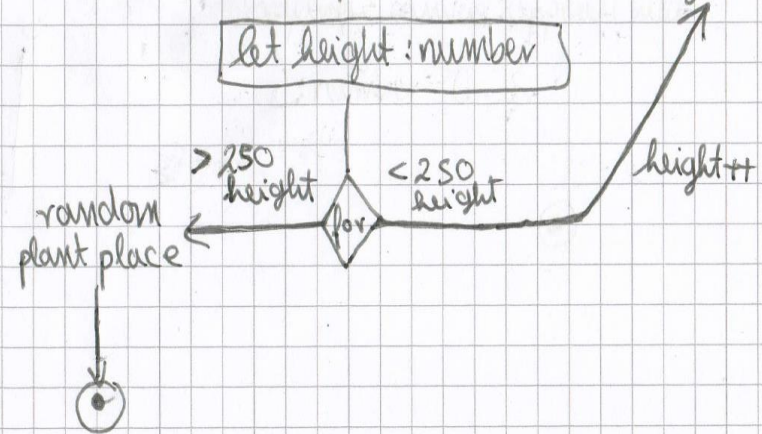 let height : number
> 250
height
< 250
height
height++
random
plant place
for